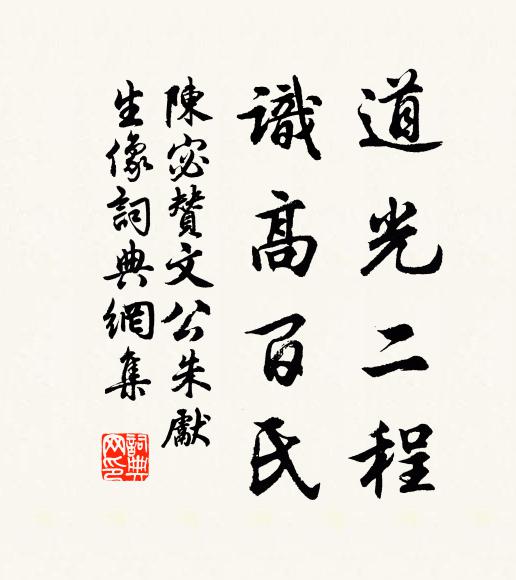 道光二程
識高百氏
陳宓贊文公朱獻
生像詞典網集
詞典網印